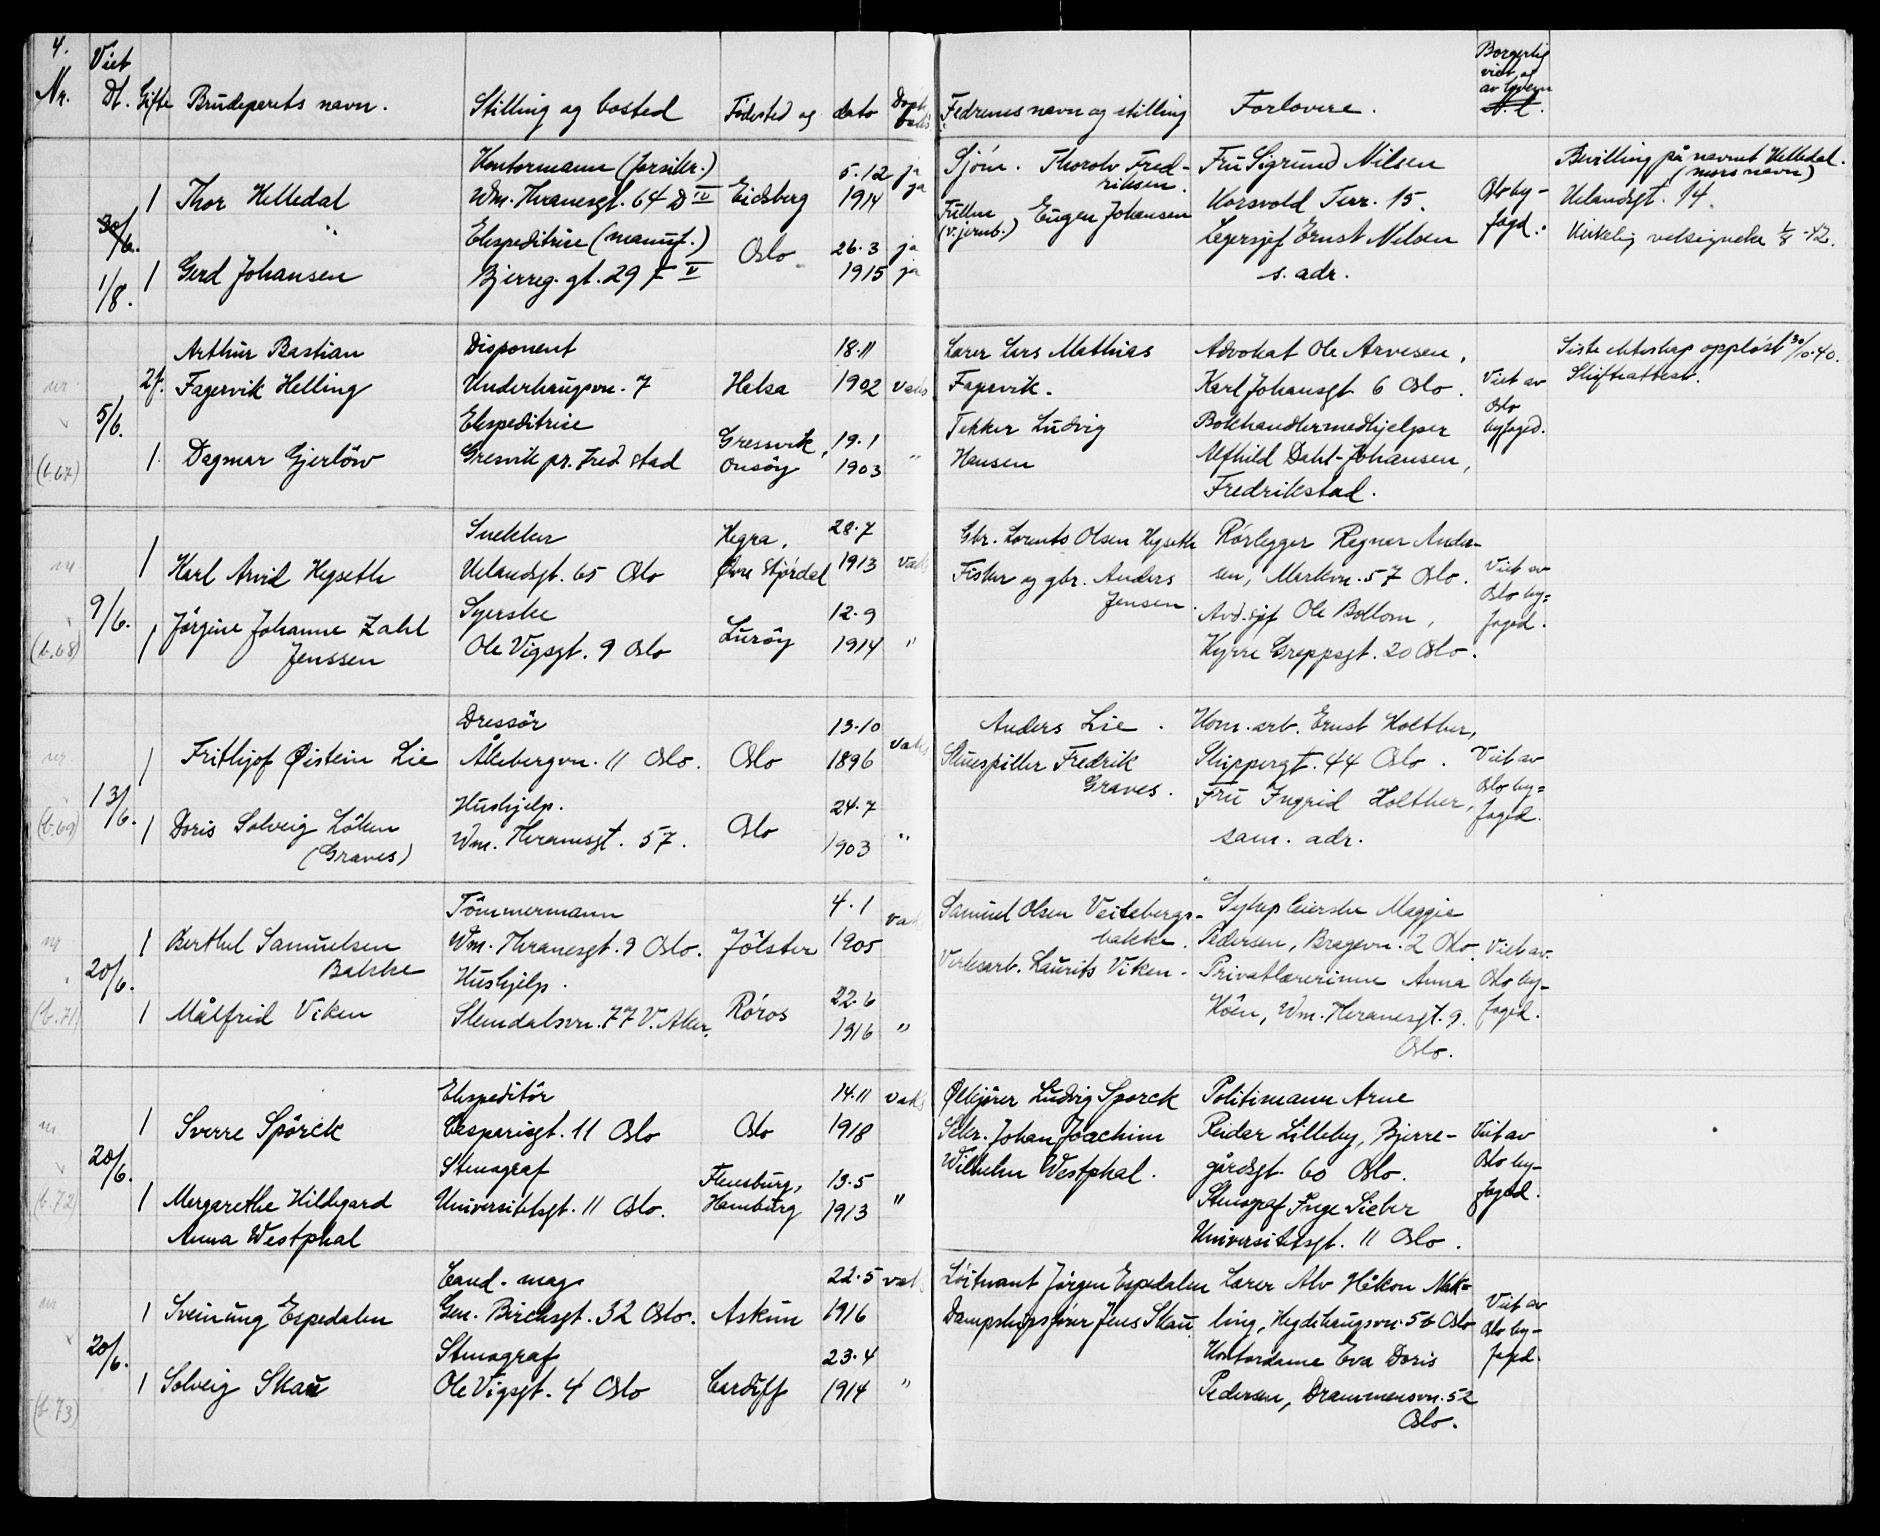 4.
Nr. Viet Dt. Gifte Brudeparets navn. Stilling og bosted Födested og dato Fedrenes navn og stilling Forlovere. Borgerlig viet
30/6. 1/8.
1 Thor Helledal
Kontormann (forsikr.)
Wm. Thranesgt. 64 D IV
Eidsberg
5.12 1914
ja ja
Sjöm. Thorolv Fredriksen.
Fru Sigrund Nilsen
Korsvold Terr. 15.
Oslo byfogd.
Bevilling på navnet Helledal.
(mors navn)
Uelandsgt. 14.
Kirkelig velsignelse 1/8-42.
1 Gerd Johansen
Ekspeditrise (manuf.)
Bjerreg. gt. 29 F IV
Oslo
26.3 1915
ja ja
(v. jernb.) Eugen Johansen
Lagersjef Ernst Nilsen
s. adr.
5/6.
(b.67)
2f. Arthur Bastian
Fagervik Helling
Disponent
Underhaugsvn. 7
Helsa
18.11 1902
vaks
Lærer Lars Mathias
Fagervik.
Advokat Ole Arvesen,
Karl Johansgt 6 Oslo.
Viet av
Oslo
byfogd.
Siste ekteskap opplöst 30/10.40.
Skifteattest.
1. Dagmar Gjerlöw
Ekspeditrise
Gresvik pr. Fred.stad
Gressvik,
Onsöy
19.1 1903
"
Tekker Ludvig
Hansen
Bokhandlermedhjelper
Alfhild Dahl-Johansen,
Fredrikstad.
9/6.
(b.68)
1 Karl Arvid Hegseth
Snekker
Uelandsgt. 65 Oslo
Hegra,
Övre Stjördal
28.7 1913
vaks
Gbr. Lorents Olsen Hegseth
Rörlegger Regner Andersen, Markvn. 57 Oslo.
Viet av
Oslo by=
fogd.
1 Jörgine Johanne Zahl
Jenssen
Syerske
Ole Vigsgt. 9 Oslo
Luröy
12.9 1914
"
Fisker og gbr. Anders
Jensen.
Avd.sjef Ole Bollom,
Kyrre Greppsgt. 20 Oslo.
13/6.
(b.69)
1 Frithjof Øistein Lie
Dressör
Ållebergvn. 11 Oslo.
Oslo
13.10 1896
vaks
Anders Lie.
Kom. arb. Ernst Holther,
Skippergt. 44 Oslo.
Viet av
Oslo by=
fogd.
1 Doris Solveig Löken
(Graves)
Hushjelp.
Wm. Thranesgt. 57.
Oslo
24.7 1903
"
Skuespiller Fredrik
Graves.
Fru Ingrid Holther,
sam. adr.
20/6.
(b.71)
1 Berthel Samuelsen
Bakke
Tömmermann
Wm. Thranesgt. 9 Oslo.
Jölster
4.1 1905
vaks
Samuel Olsen Veitebergsbakke.
Sykepleierske Maggie
Pedersen, Bragevn. 2 Oslo.
Viet av
Oslo by-
fogd.
1 Målfrid Viken
Hushjelp.
Slemdalsvn. 77 V. Aker.
Röros
22.6 1916
"
Verksarb. Laurits Viken.
Privatlærerinne Anna
Höen, Wm. Thranesgt. 9.
Oslo.
20/6.
(b.72)
1 Sverre Spörck
Ekspeditör
Casparisgt. 11 Oslo
Oslo
14.11 1918
vaks
Ölkjörer Ludvig Sporck
Politimann Arne
Reidar Lilleby, Bjerregårdsgt. 60 Oslo.
Viet av
Oslo by-
fogd.
1 Margarethe Hildegard
Anna Westphal
Stenograf
Universitetsgt. 11 Oslo.
Flensburg,
Hamburg
13.5 1913
"
Sekr. Johan Joachim
Wilhelm Westphal.
Stenograf Inge Sieber
Universitetsgt. 11 Oslo.
20/6.
(b.73)
1 Sveinung Espedalen
Cand. mag.
Gen. Birchsgt. 32 Oslo.
Askim
22.5 1916
vak
Löitnant Jörgen Espedalen
Lærer Alv Håkon
Hegdehaugsvn. 5b Oslo
Viet av
Oslo by-
fogd.
1 Solveig Skau
Stenograf
Ole Vigsgt. 4 Oslo
Cardiff
23.4 1914
"
Dampskipsförer Jens Skau
Kontordame Eva Doris
Pedersen, Drammensvn. 52
Oslo.